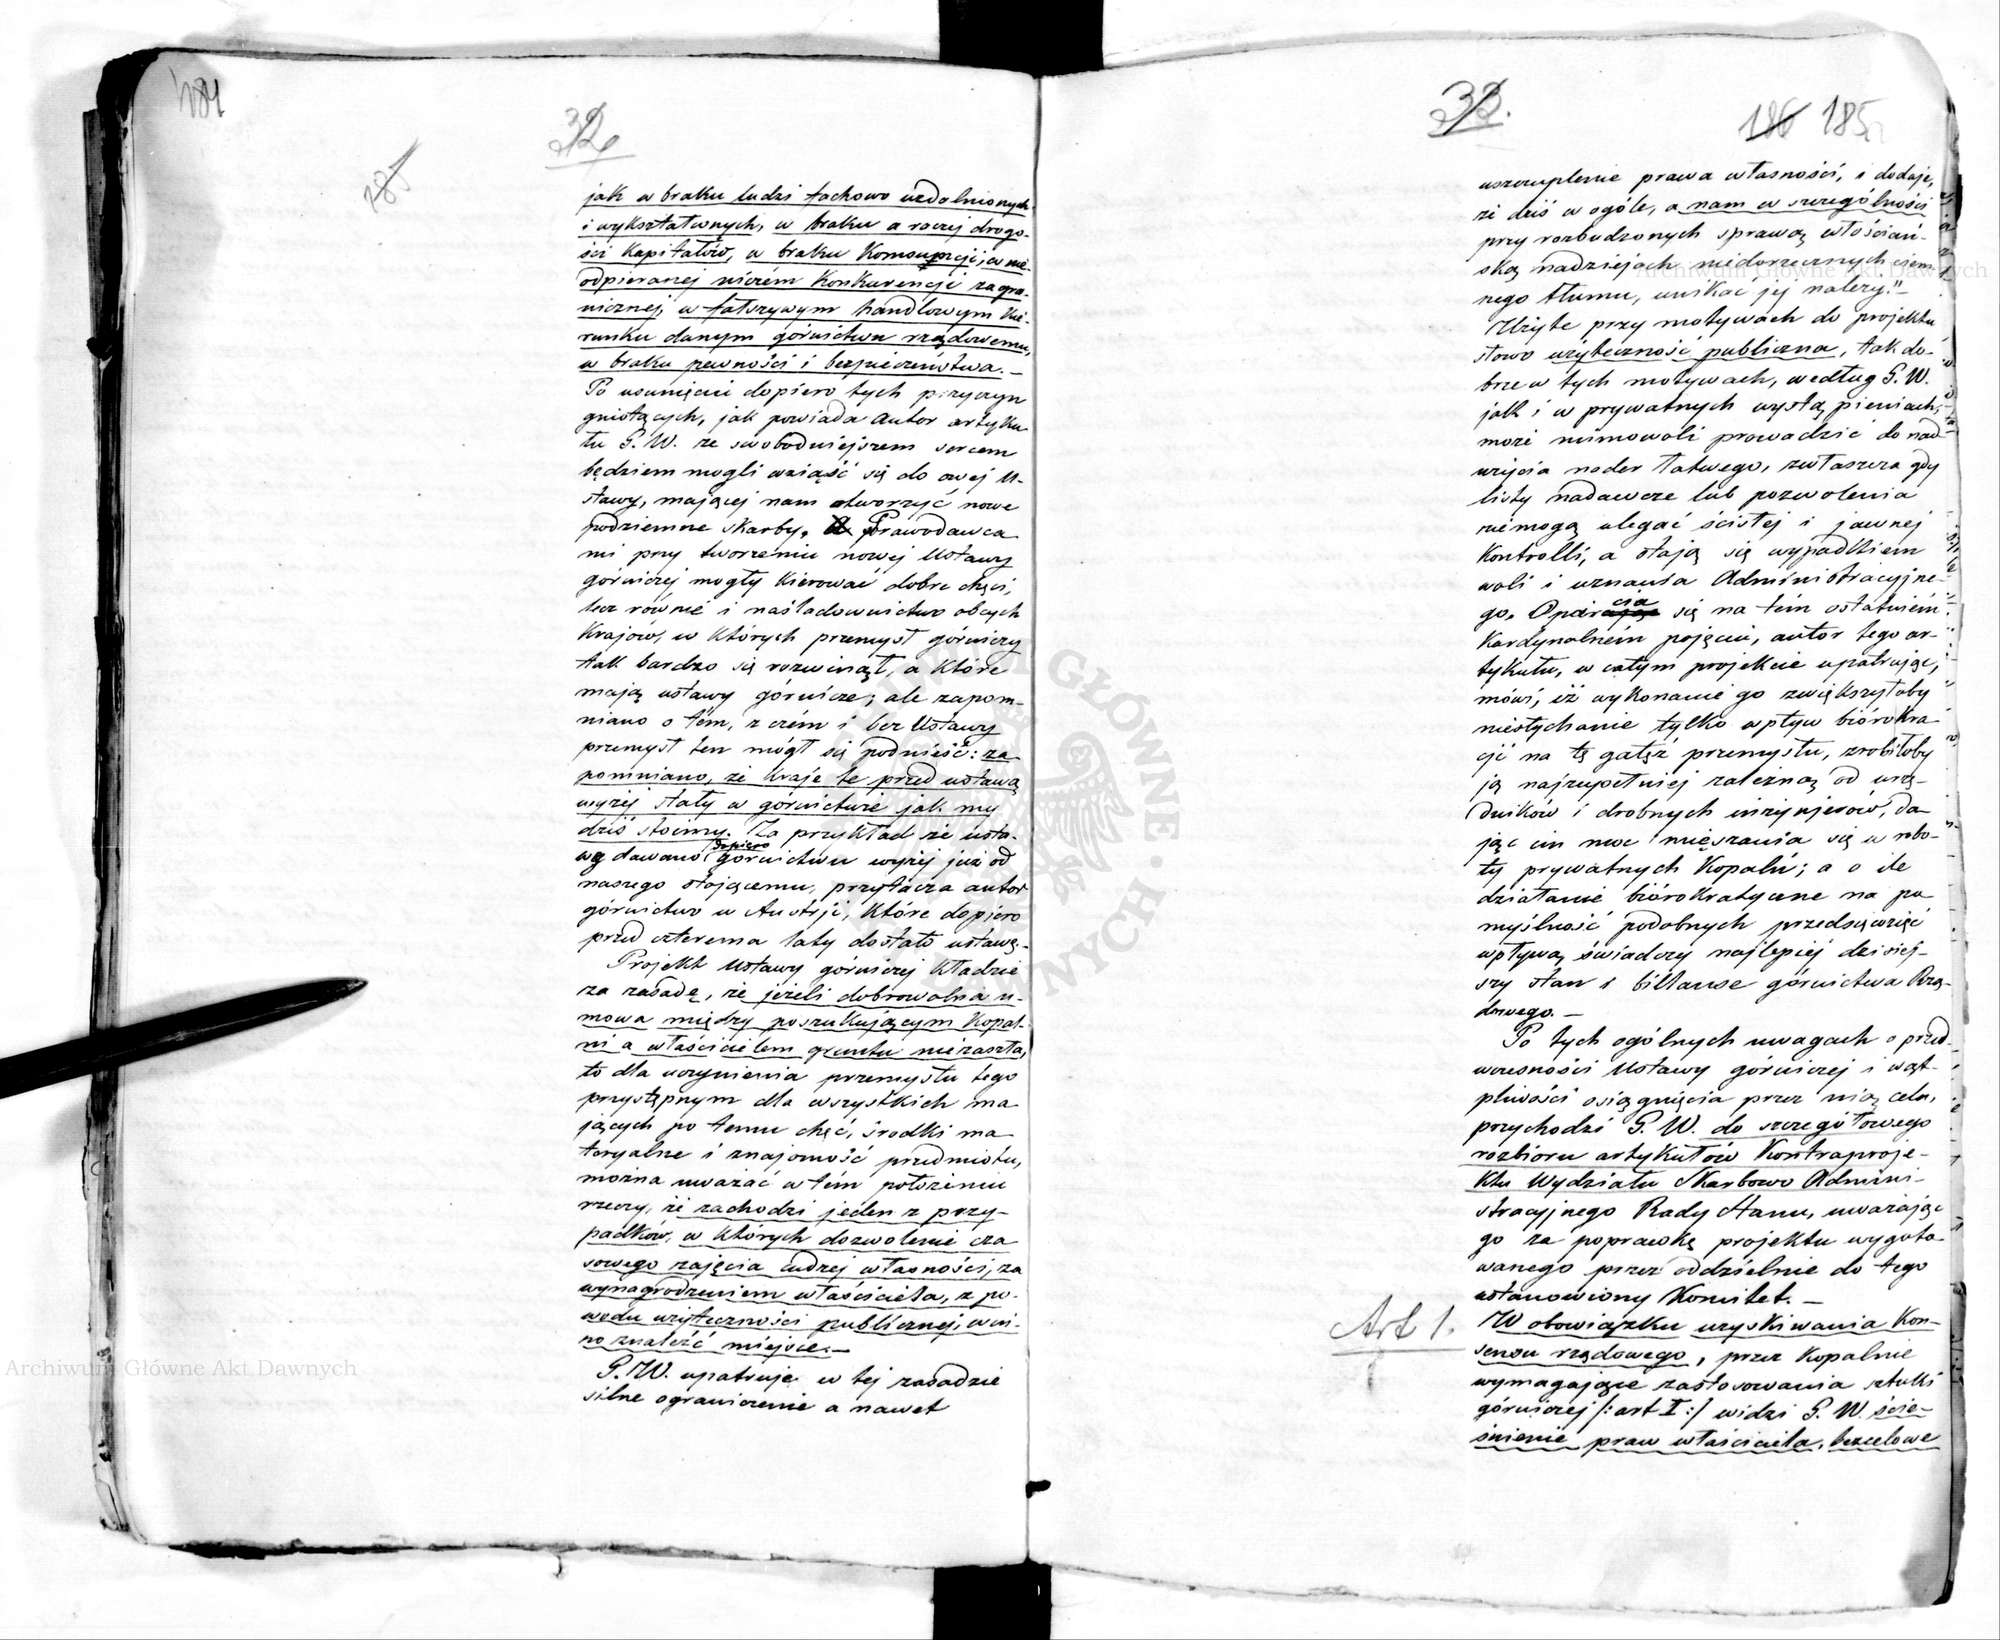 184
185
32.
jak w braku ludzi fachowo uzdolnionych
i wykształconych, w braku a raczej drogo-
ści Kapitałów, w braku Komsumpcji, w nie-
odpieranej niczem Konkurencji zagra-
nicznej, w fałszywym handlowym kie-
runku danym górnictwu rządowemu,
w braku pewności i bezpieczeństwa. —
Po usunięciu dopiero tych przyczyn
gniotących, jak powiada autor artyku
łu G. W. ze swobodniejszem sercem
będziem mogli wziąść się do owej U-
stawy, mającej nam otworzyć nowe
podziemne skarby. Prawodawca
mi przy tworzeniu nowej Ustawy
górniczej mogły kierować dobre chęci,
lecz równie i naśladownictwo obcych
Krajów, w których przemysł górniczy
tak bardzo się rozwinął, a które
mają ustawy górnicze; ale zapom-
niano o tém, z czém i bez Ustawy
przemysł ten mógł się podnieść: za
pomniano, że kraje te przed ustawą
wyżej stały w górnictwie jak my
dziś stoimy. Za przykład że usta-
wę dawano dopiero górnictwu wyżej już od
naszego stojącemu, przytacza autor
górnictwo w Austrji, które dopiero
przed czterema laty dostało ustawę.-
Projekt Ustawy górniczej kładzie
za zasadę, że jeżeli dobrowolna u-
mowa między poszukującym Kopal-
ni a właścicielem gruntu niezaszła,
to dla uczynienia przemysłu tego
przystępnym dla wszystkich ma
jących po temu chęć, środki ma
teryalne i znajomość przedmiotu,
można uważać w tém położeniu
rzeczy, że zachodzi jeden z przy-
padków, w których dozwolenie cza
sowego zajęcia cudzej własności, za
wynagrodzeniem właściciela, z po-
wodu użyteczności publicznej, win-
no znaleźć miejsce. —
G. W. upatruje w tej zasadzie
silne ograniczenie a nawet
33.
186 185
uszczuplenie prawa własności, i dodaje,
że dziś w ogóle, a nam w szczególności
przy rozbudzonych sprawą włościań-
ską nadziejach niedorzecznych ciem
nego tłumu, unikać jej należy." —
Użyte przy motywach do projektu
słowo użyteczność publiczna, tak do-
brze w tych motywach, według G. W.
jak i w prywatnych wystąpieniach,
może mimowoli prowadzić do nad-
użycia nader łatwego, zwłaszcza gdy
listy nadawcze lub pozwolenia
niemogą ulegać ścisłej i jawnej
Kontrolli, a stają się wypadkiem
woli i uznania Administracyjne-
go. Oparcia się na tém ostatniém
Kardynalném pojęciu, autor tego ar-
tykułu, w całym projekcie upatrując,
mówi, iż wykonanie go zwiększyłoby
niesłychanie tylko wpływ biórokra
cji na tę gałęź przemysłu, zrobiłoby
ją najzupełniej zależną od urzę-
dników i drobnych inżynjerów, da-
jąc im moc mięszania się w robo-
ty prywatnych Kopalń; a o ile
działanie biórokratyczne na po
myślność podobnych przedsięwzięć
wpływa, świadczy najlepiej dzisiej-
szy stan i billanse górnictwa Rzą-
dowego. —
Po tych ogólnych uwagach o przed-
wczesności Ustawy górniczej i wąt-
pliwości osiągnięcia przez nią celu,
przychodzi G. W. do szczegółowego
rozbioru artykułów Kontraproje-
ktu Wydziału Skarbowo Admini-
stracyjnego Rady Stanu, uważając
go za poprawkę projektu wygoto-
wanego przez oddzielnie do tego
ustanowiony Komitet. —
Art 1.
W obowiązku uzyskiwania Kon-
sensu rządowego, przez Kopalnie
wymagające zastosowania sztuki
górniczej /:art I:/ widzi G. W. ście-
śnienie praw właściciela, bezcelowe
Archiwum Główne Akt Dawnych
Archiwum Główne Akt Dawnych